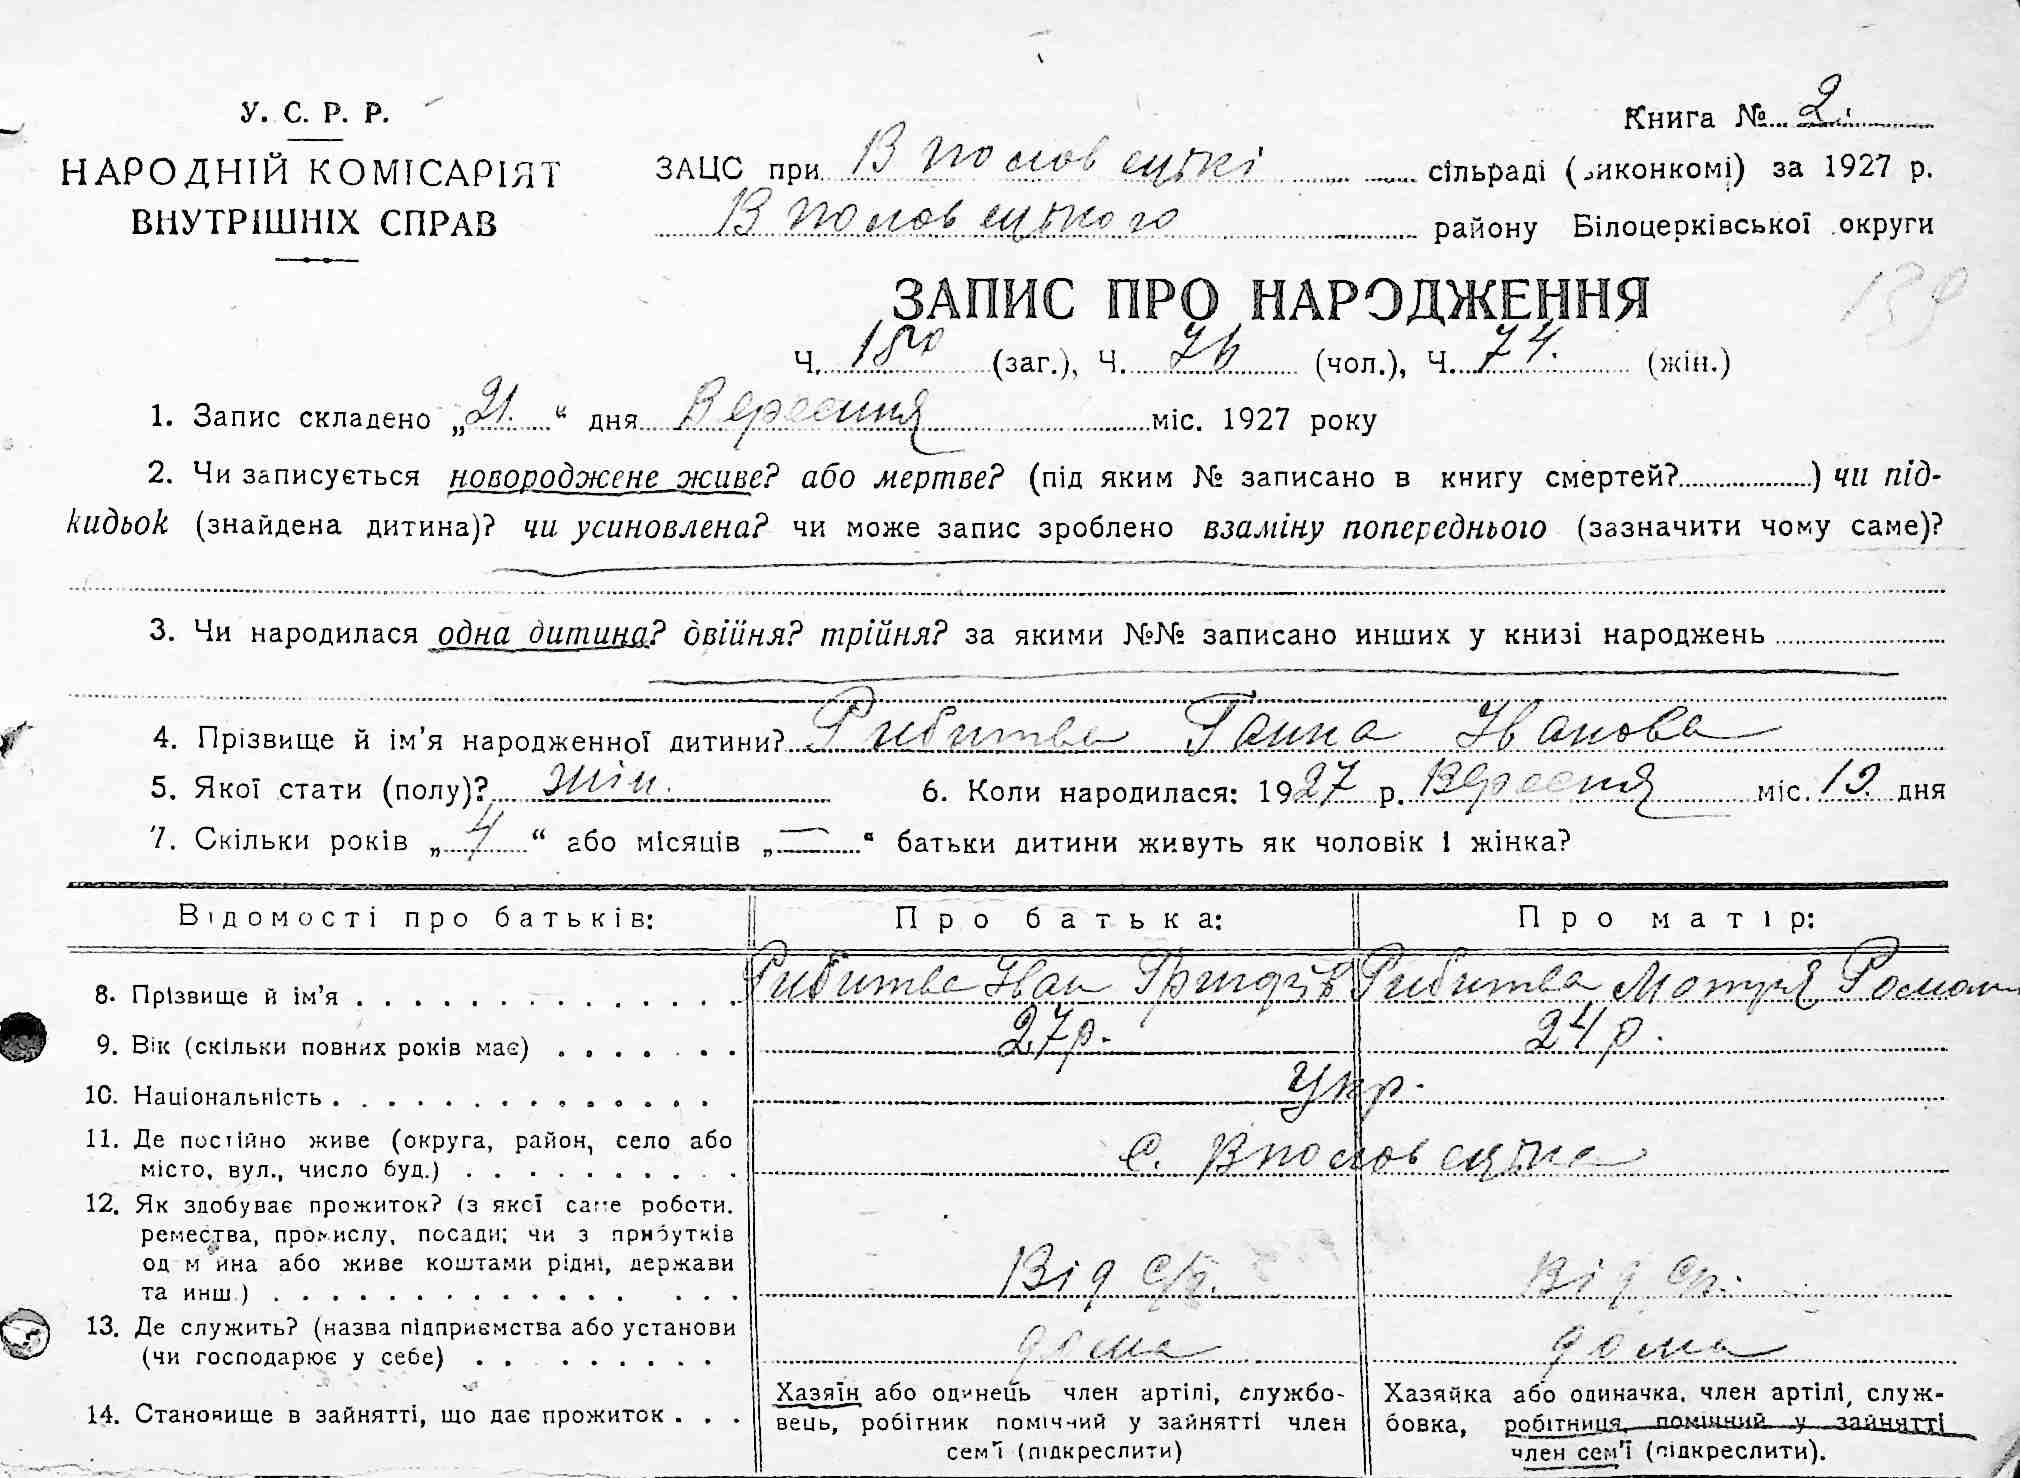 У. С. Р. Р.
НАРОДНІЙ КОМІСАРІЯТ
ВНУТРІШНІХ СПРАВ
Книга № 2.
ЗАЦС при Вполовецькі сільраді (виконкомі) за 1927 р.
Вполовецького району Білоцерківської округи
139
ЗАПИС ПРО НАРОДЖЕННЯ
Ч. 150 (заг.), Ч. 76 (чол.), Ч. 74. (жін.)
1. Запис складено „21.“ дня Вересння міс. 1927 року
2. Чи записується новороджене живе? або мертве? (під яким № записано в книгу смертей?) чи під-
кидьок (знайдена дитина)? чи усиновлена? чи може запис зроблено взаміну попереднього (зазначити чому саме)?
3. Чи народилася одна дитина? двійня? трійня? за якими №№ записано инших у книзі народжень
4. Прізвище й ім'я народженної дитини? Рибитва Ганна Іванова
5. Якої стати (полу)? жін. 6. Коли народилася: 1927 р. Вересня міс. 19. дня
7. Скільки років „4“ або місяців „—“ батьки дитини живуть як чоловік і жінка?
Відомості про батьків: Про батька: Про матір:
8. Прізвище й ім'я Рибитва Іван Рибитва Мотря Роман
9. Вік (скільки повних років має) 27р. 24р.
10. Національність Укр.
11. Де постійно живе (округа, район, село або
місто, вул., число буд.) с. Вполовецька
12. Як здобуває прожиток? (з якої саме роботи,
ремества, промислу, посади; чи з прибутків
од майна або живе коштами рідні, держави
та инш.) Від с/г. Від
13. Де служить? (назва підприємства або установи
(чи господарює у себе) дома дома
14. Становище в зайнятті, що дає прожиток
Хазяїн або одинець член артілі, службо-
вець, робітник помічний у зайнятті член
сем'ї (підкреслити)
Хазяйка або одиначка, член артілі, служ-
бовка, робітниця, помічний у зайнятті
член сем'ї (підкреслити).